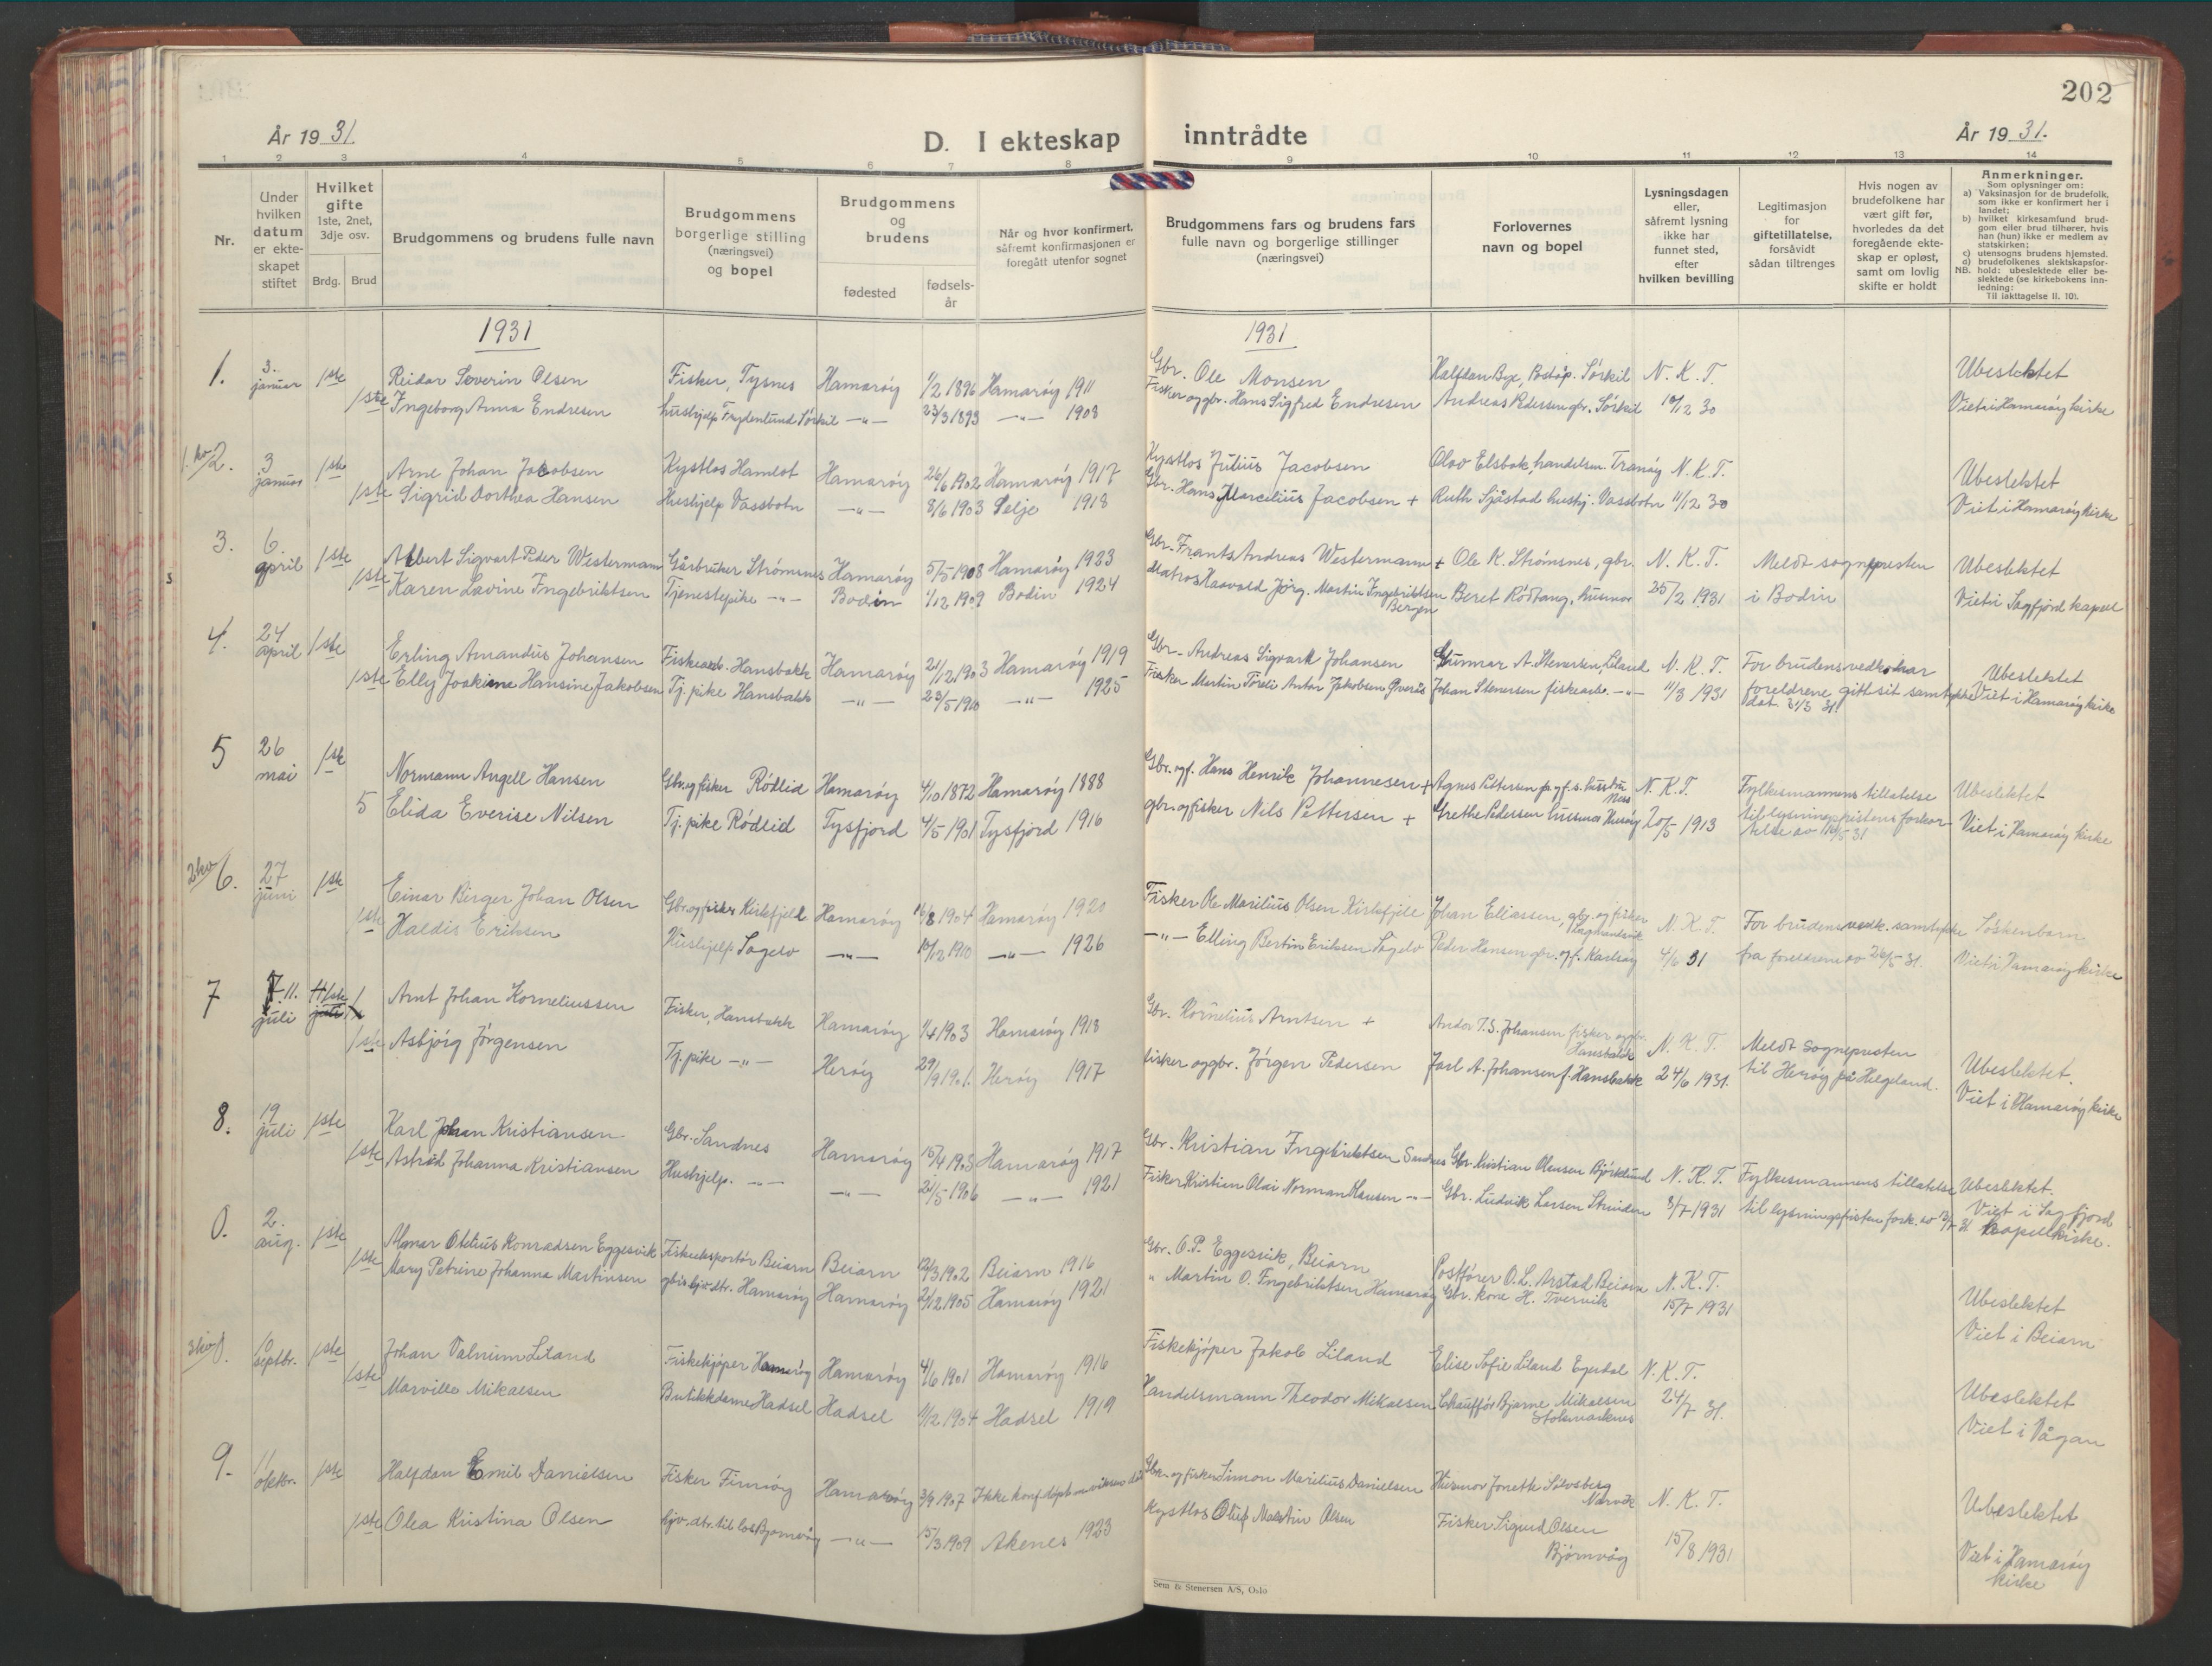 202
År 1931.
D. I ekteskap inntrådte
År 1931.
1 2 3 4 5 6 7 8 9 10 11 12 13 14
Nr.
Under hvilken datum er ekteskapet stiftet
Hvilket gifte 1ste, 2net, 3dje osv.
Brdg. Brud
Brudgommens og brudens fulle navn
Brudgommens borgerlige stilling (næringsvei) og bopel
Brudgommens og brudens
fødested
fødselsår
Når og hvor konfirmert, såfremt konfirmasjonen er foregått utenfor sognet
Brudgommens fars og brudens fars fulle navn og borgerlige stillinger (næringsvei)
Forlovernes navn og bopel
Lysningsdagen eller, såfremt lysning ikke har funnet sted, efter hvilken bevilling
Legitimasjon for giftetillatelse, forsåvidt sådan tiltrenges
Hvis nogen av brudefolkene har vært gift før, hvorledes da det foregående ekteskap er opløst, samt om lovlig skifte er holdt
Anmerkninger.
Som oplysninger om:
a) Vaksinasjon for de brudefolk, som ikke er konfirmert her i landet;
b) hvilket kirkesamfund brudgom eller brud tilhører, hvis han (hun) ikke er medlem av statskirken;
c) utensogns brudens hjemsted.
d) brudefolkenes slektskapsforhold: ubeslektede eller beslektede (se kirkebokens innledning:
NB. Til iakttagelse II. 10).
1931 1931
1. 3. januar 1ste Reidar Severin Olsen Fisker, Tysnes Hamarøy 1/2 1896 Hamarøy 1911 Gbr. Ole Monsen Halfdan Bye, Sørkil N. K. T. Ubeslektet
1ste Ingeborg Anna Endresen hushjelp Frydenlund Sørkil -"- 23/3 1893 -"- 1908 Fisker og gbr. Hans Sigfred Endresen Andreas Pedersen gbr. Sørkil 10/12 30 Viet i Hamarøy kirke
2. 3 januar 1ste Arne Johan Jakobsen Kystlos Hamlot Hamarøy 26/6 1902 Hamarøy 1917 Kystlos Julius Jacobsen Olav Elsbak, handelsm. Tranøy N. K. T. Ubeslektet
1ste Sigrid Dorthea Hansen Hushjelp Vassbotn -"- 8/6 1903 Selje 1918 Gbr. Hans Marcelius Jacobsen + Ruth Sjåstad hushj. Vassbotn 11/12 30 Viet i Hamarøy kirke
3. 6. april 1ste Albert Sigvart Peder Westermann Gårbruker Strømnes Hamarøy 5/5 1908 Hamarøy 1923 Gbr. Frants Andreas Westermann + Ole K. Strømsnes, gbr. N. K. T. Meldt sognepresten Ubeslektet
1ste Karen Lovine Ingebriktsen Tjenestepike -"- Bodin 1/12 1909 Bodin 1924 Matros Haavald Jørg. Martin Ingebriktsen Bergen Beret Rødtang, husmor 25/2 1931 i Bodin Viet i Sagfjord kapell
4. 24 april 1ste Erling Amandus Johansen Fiskearb. Hansbakk Hamarøy 21/12 1903 Hamarøy 1919 Gbr. Andreas Sigvart Johansen Gunnar A. Stenersen, Liland N. K. T. For brudens vedkom. har Ubeslektet
1ste Elly Joakime Hansine Jakobsen Tj. pike Hansbakk -"- 23/5 1910 -"- 1925 Fisker Martin Toreli Anton Jakobsen Johan Stenersen fiskearb. -"- 11/3 1931 foreldrene gitt sit samtykke dat. 31/3 31. Viet i Hamarøy kirke
5 26 mai 1ste Normann Angell Hansen Gbr. og fisker Rødlid Hamarøy 4/10 1872 Hamarøy 1888 Gbr. og f. Hans Henrik Johannesen + Agnes Pettersen Ness N. K. T. Fylkesmannens tillatelse Ubeslektet
5 Elida Everise Nilsen Tj. pike Rødlid Tysfjord 4/5 1901 Tysfjord 1916 gbr. og fisker Nils Pettersen + Grethe Pedersen husmor 20/5 1913 til lysningsfristens forkortelse av 19/5 31 Viet i Hamarøy kirke
6. 27 juni 1ste Einar Birger Johan Olsen Gbr. og fisker Kirkefjell Hamarøy 16/8 1904 Hamarøy 1920 Fisker Ole Marilius Olsen Kirkefjell Johan Eliassen, gbr. og fisker N. K. T. For brudens vedk. samtykke Søskenbarn
1ste Haldis Eriksen Hushjelp Sagelv -"- 10/12 1910 -"- 1926 -"- Elling Bertin Eriksen Sagelv Peder Hansen gbr. og f. Karlsøy 4/6 31 fra foreldrene av 26/5 31. Viet i Hamarøy kirke
7 11. juli 1ste Arnt Johan Korneliussen Fisker, Hansbakk Hamarøy 1/4 1903 Hamarøy 1918 Gbr. Kornelius Arntsen + Andor T. S. Johansen fisker og gbr. Hansbakk N. K. T. Meldt Sognepresten Ubeslektet.
1ste Asbjørg Jørgensen Tj. pike -"- Herøy 29/9 1901. Herøy 1917 fisker og gbr. Jørgen Pedersen Jarl A. Johansen f. Hansbakk 24/6 1931. til Herøy på Helgeland. Viet i Hamarøy kirke
8. 19 juli 1ste Karl Johan Kristiansen Gbr. Sandnes Hamarøy 15/4 1903 Hamarøy 1917 Gbr. Kristian Ingebriktsen Sandnes Gbr. Kristian Olausen Bjørklund N. K. T. Fylkesmannens tillatelse Ubeslektet.
1ste Astrid Johanna Kristiansen Hushjelp. -"- -"- 21/5 1906 -"- 1921 Fisker Kristian Olai Norman Hansen -"- Gbr. Ludvik Larsen Strinden 3/7 1931 til lysningsfristen fork. av 13/7 31 Viet i Sagfjord kapellkirke.
0. 2. aug. 1ste Almar Otelius Konradsen Eggesvik Fiskeeksportør Beiarn Beiarn 12/3 1902 Beiarn 1916 Gbr. O. P. Eggesvik, Beiarn Postfører O. L. Arstad Beiarn N. K. T. Ubeslektet
1ste Mary Petrine Johanna Martinsen Hamarøy Hamarøy 21/12 1905 Hamarøy 1921 " Martin O. Ingebriktsen Hamarøy Gbr. kone H. Tvervik 15/7 1931 Viet i Beiarn
0. 10 septbr. 1ste Johan Valnum Liland Fiskekjøper Hamarøy Hamarøy 4/6 1901 Hamarøy 1916 Fiskekjøper Jakob Liland Elise Sofie Liland N. K. T. Ubeslektet
1ste Marville Mikalsen Butikkdame Hadsel Hadsel 1/12 1904 Hadsel 1919 Handelsmann Theodor Mikalsen Chauffør Bjarne Mikalsen Stokmarknes 24/7 31. Viet i Vågan
9. 11 oktbr. 1ste Halfdan Emil Danielsen Fisker Finnøy Hamarøy 3/9 1907 Ikke konf. Gbr. og fisker Simon Marilius Danielsen Husmor Jonette Solvsberg Narvik N. K. T. Ubeslektet
1ste Olea Kristina Olsen hjv. dtr. til los Bjørnvåg -"- 15/3 1909 Akenes 1923 Kystlos Oluf Martin Olsen Fisker Sigurd Olsen Bjørnvåg 15/8 1931 Viet i Hamarøy kirke
Sem & Stenersen A/S, Oslo